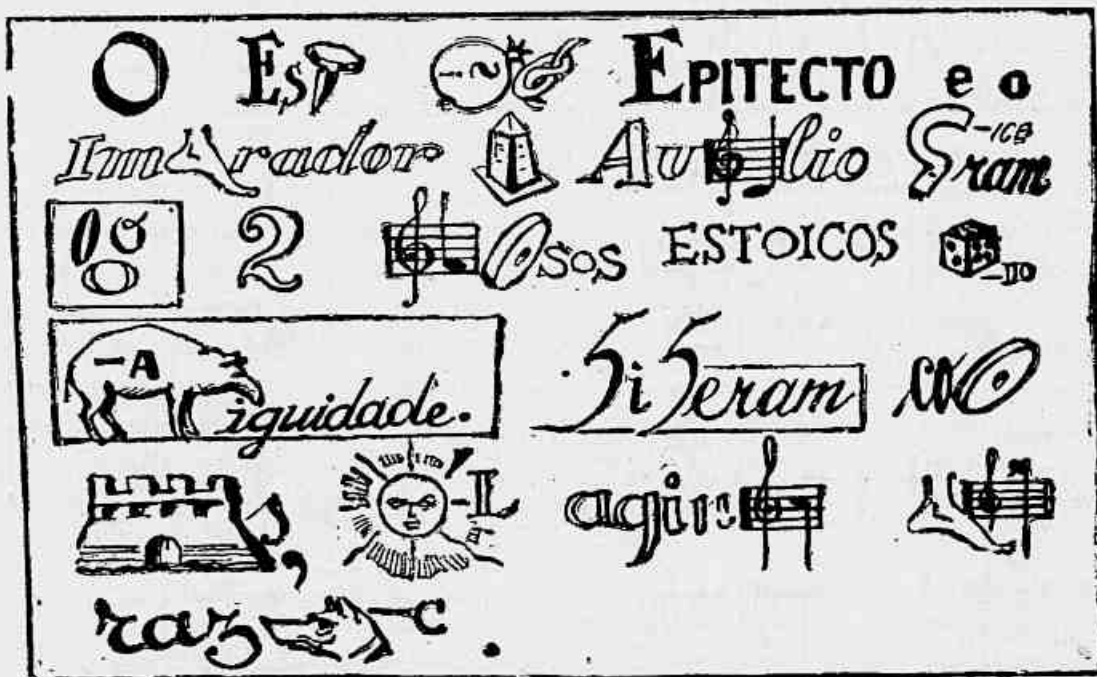 O Es EPITECTO e o
Im rador Au lio -ICE ram
2 sos ESTOICOS -DO
-A iguidade. Si Seram co
s, -L agin
raz -C .